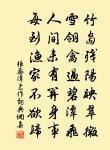 竹島殘陽映翠微
雪翎禽過碧潭飛
人間未有關身事
每到漁家不欲歸
張喬潭上作詩詞典網集